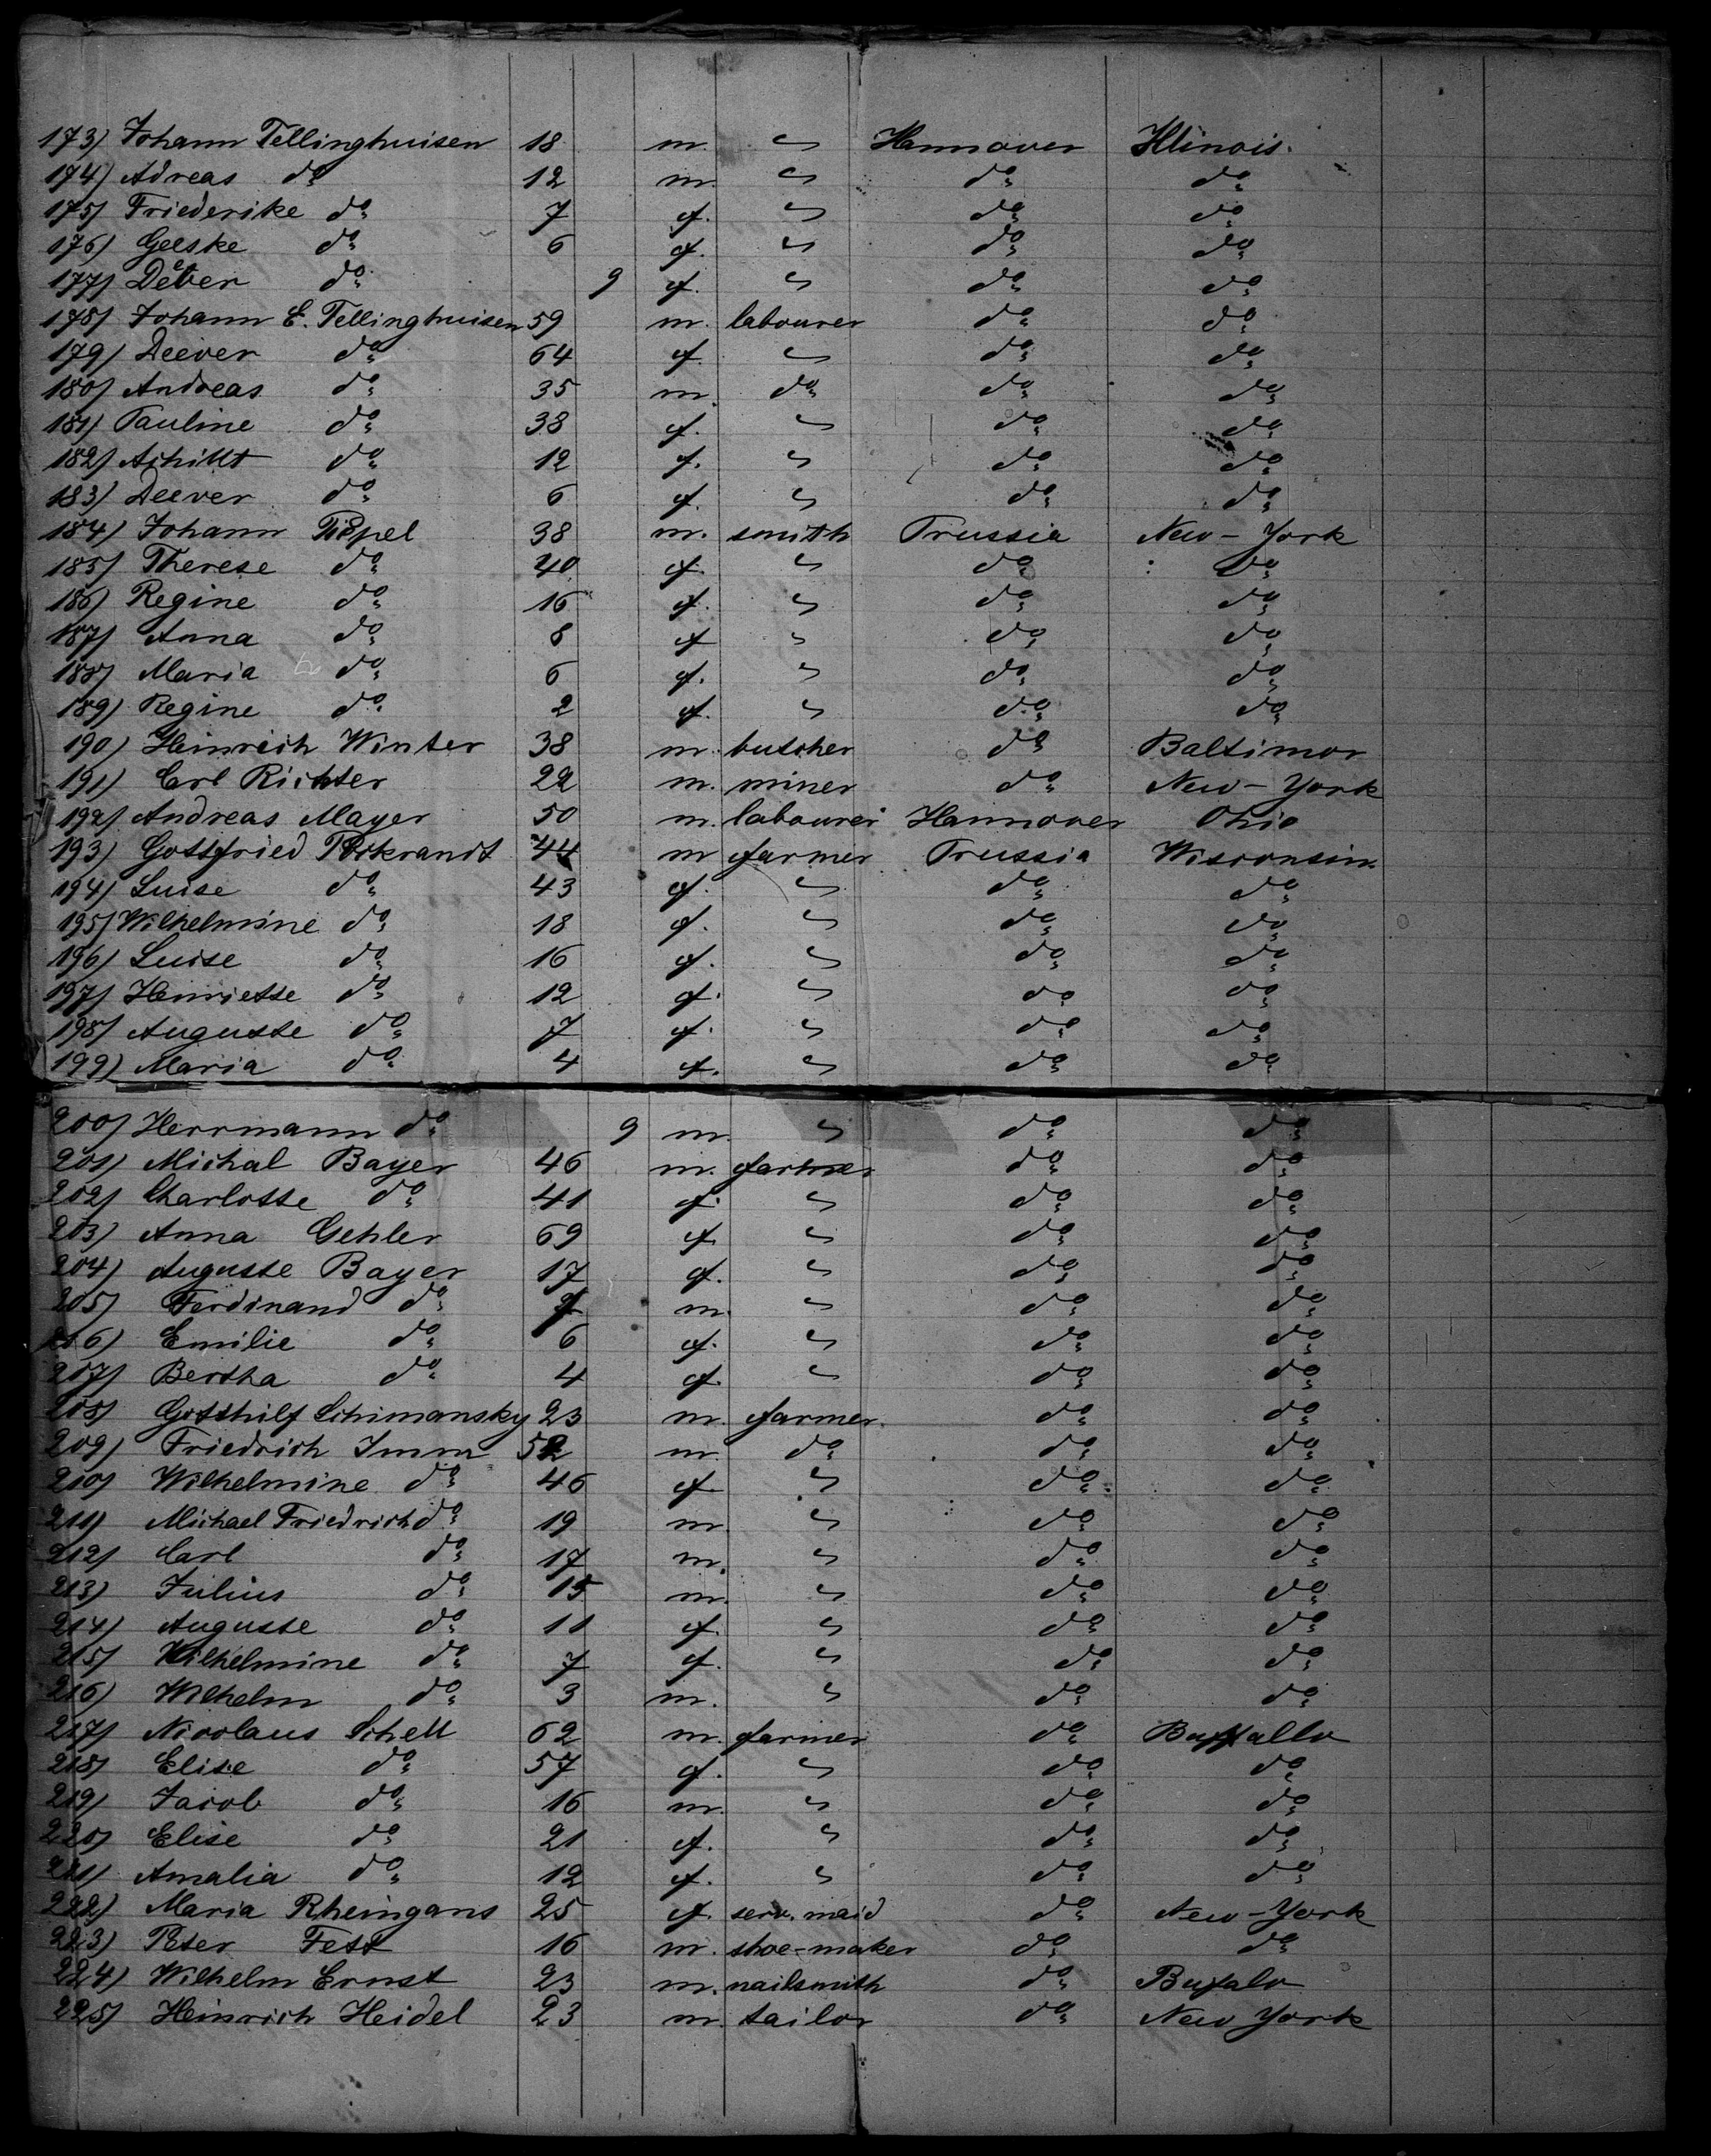 173) Johann Tellinghuisen 18 m. " Hannover Illinois.
174) Adreas do 12 m. " do do
175) Friederike do 7 f. " do do
176) Geeske do 6 f. " do do
177) Dever do 9 f. " do do
178) Johann E. Tellinghuisen 59 m. labourer do do
179) Deever do 64 f. " do do
180) Andreas do 35 m. do do do
181) Pauline do 38 f. " do do
182) do 12 f. " do do
183) Deever do 6 f. " do do
184) Johann 38 m. smith Prussia New-York
185) Therese do 40 f. " do do
186) Regine do 16 f. " do do
187) Anna do 8 f " do do
188) Maria do 6 f. " do do
189) Regine do 2 f. " do do
190) Heinrich Winter 38 m. butcher do Baltimor
191) Carl Richter 22 m. miner do New-York
192) Andreas Mayer 50 m. labourer Hannover Ohio
193) Gottfried 44 m farmer Prussia Wisconsin
194) Luise do 43 f. " do do
195) Wilhelmine do 18 f. " do do
196) Luise do 16 f. " do do
197) Henriette do 12 f. " do do
198) Auguste do 7 f. " do do
199) Maria do 4 f. " do do
200) Herrmann do 9 m. " do do
201) Michal Bayer 46 m. farmer do do
202) Charlotte do 41 f. " do do
203) Anna Gehler 69 f. " do do
204) Auguste Bayer 17 f. " do do
205) Ferdinand do m. " do do
206) Emilie do 6 f. " do do
207) Bertha do 4 f. " do do
208) Gotthilf Schimansky 23 m. farmer. do do
209) Friedrich Imm 52 m. do do do
210) Wilhelmine do 46 f " do do
211) Michael Friedrich do 19 m. " do do
212) Carl do 17 m. " do do
213) Julius do 15 m. " do do
214) Auguste do 11 f. " do do
215) Wilhelmine do 7 f. " do do
216) Wilhelm do 3 m. " do do
217) Nicolaus Schell 62 m. farmer do Buffallo
218) Elise do 57 f. " do do
219) Jacob do 16 m. " do do
220) Elise do 21 f. " do do
221) Amalia do 12 f. " do do
222) Maria Rheingans 25 f. serv. maid do New-York
223) Peter Fest 16 m. shoe-maker do do
224) Wilhelm Ernst 23 m. nailsmith do Bufalo
225) Heinrich Heidel 23 m. tailor do New York